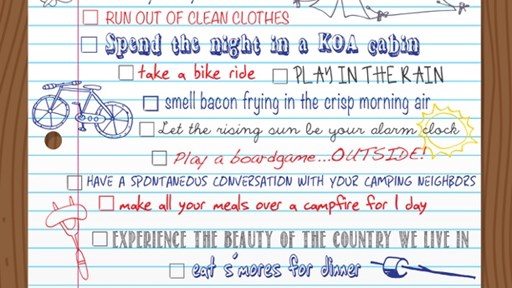 RUN OUT OF CLEAN CLOTHES
Spend the night in a KOA cabin
take a bike ride PLAY IN THE RAIN
smell bacon frying in the crisp morning air
Let the rising sun be your alarm clock
Play a boardgame...OUTSIDE!
HAVE A SPONTANEOUS CONVERSATION WITH YOUR CAMPING NEIGHBORS
make all your meals over a campfire for 1 day
EXPERIENCE THE BEAUTY OF THE COUNTRY WE LIVE IN
eat s'mores for dinner